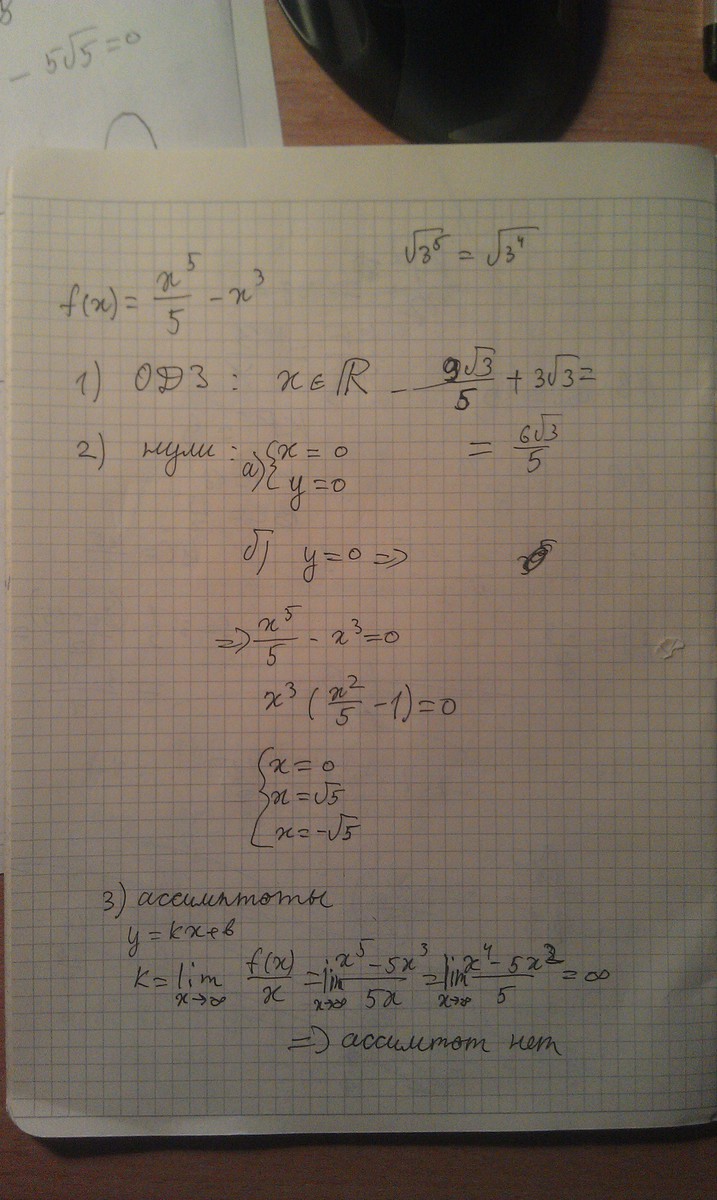 - 5√5 = 0
√3⁵ = √3⁴
f(x) = x⁵/5 - x³
1) ОДЗ : x ∈ ℝ
- 9√3/5 + 3√3 =
= 6√3/5
2) нули : а) { x = 0
y = 0
б) y = 0 =>
=> x⁵/5 - x³ = 0
x³ (x²/5 - 1) = 0
{ x = 0
x = √5
x = -√5
3) ассимптоты
y = kx + в
K = lim x→∞ f(x)/x = lim x→∞ (x⁵ - 5x³)/5x = lim x→∞ (x⁴ - 5x²)/5 = ∞
=> ассимтот нет